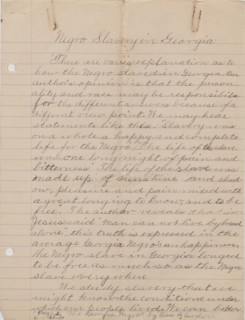 Negro Slavery in Georgia
There are various explanation as to
how the Negro slaves lived in Georgia. An
author's opinion is that the person
ality and race may be responsible
for the different views because of a
different view point. We may hear
statements like this: "Slavery was
on a whole a happy and complete
life for the Negro." "The life of the slave
was one long night of pain and
bitterness." The life of the slave was
made up of sunshine and shad
ow, pleasure and pain mixed with
a great longing to know and to be
free. The author reveals that as
Jesus said "Man can not live by bread
alone" this truth is expressed in the
average Georgia Negro's unhappiness.
The Negro slave in Georgia longed
to be free as much so as the Negro
slave everywhere.
We study slavery that we
might know the conditions under
which our people lived. We can better